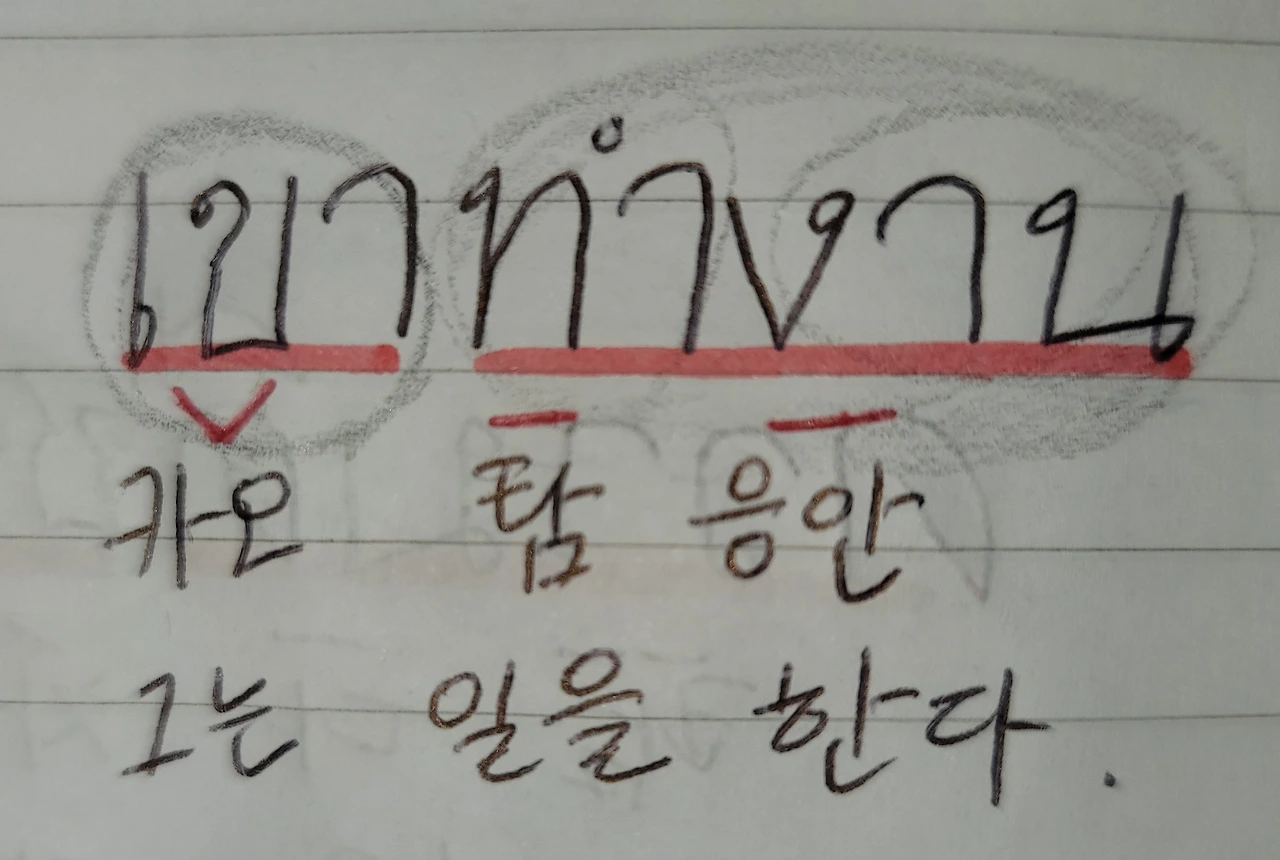 เขาทำงาน
카오 탐 응안
그는 일을 한다.